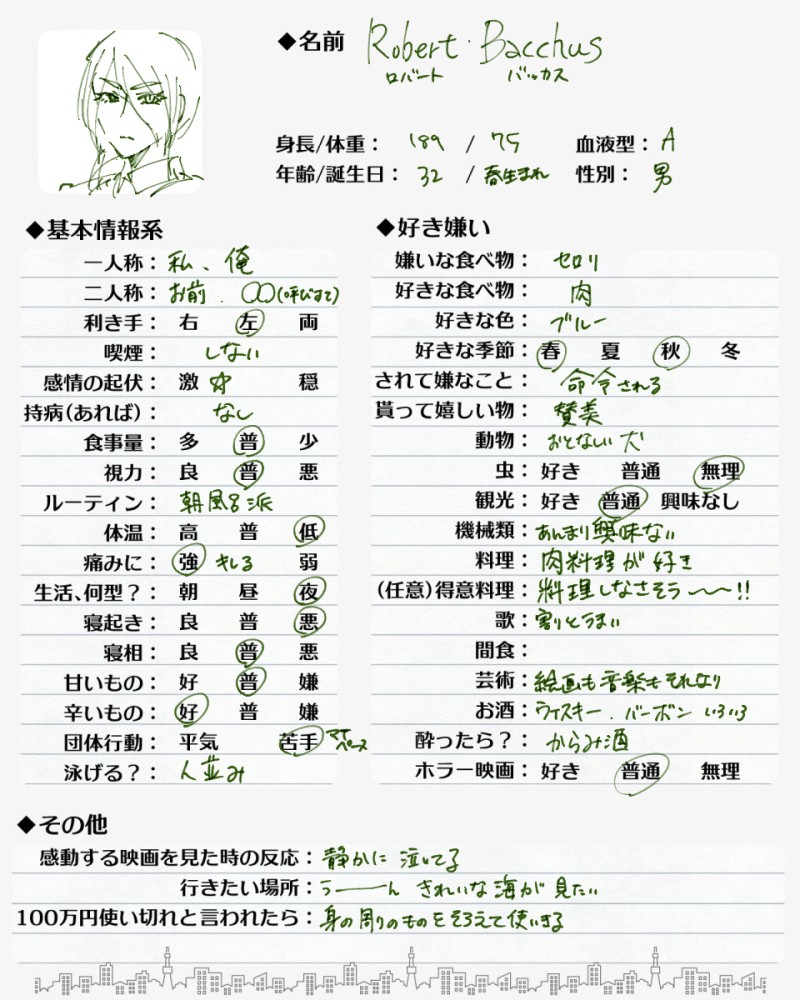 ◆名前 Robert・Bacchus
ロバート バッカス
身長/体重： 189 / 75 血液型： A
年齢/誕生日： 32 / 春生まれ 性別： 男
◆基本情報系
一人称： 私、俺
二人称： お前、○○(呼びすて)
利き手： 右 左 両
喫煙： しない
感情の起伏： 激 中 穏
持病(あれば)： なし
食事量： 多 普 少
視力： 良 普 悪
ルーティン： 朝風呂派
体温： 高 普 低
痛みに： 強 キレる 弱
生活、何型？： 朝 昼 夜
寝起き： 良 普 悪
寝相： 良 普 悪
甘いもの： 好 普 嫌
辛いもの： 好 普 嫌
団体行動： 平気 苦手 マイペース
泳げる？： 人並み
◆好き嫌い
嫌いな食べ物： セロリ
好きな食べ物： 肉
好きな色： ブルー
好きな季節： 春 夏 秋 冬
されて嫌なこと： 命令される
貰って嬉しい物： 賛美
動物： おとなしい犬
虫： 好き 普通 無理
観光： 好き 普通 興味なし
機械類： あんまり興味ない
料理： 肉料理が好き
(任意)得意料理： 料理しなさそう〜〜!!
歌： 割とうまい
間食：
芸術： 絵画も音楽もそれなり
お酒： ウィスキー、バーボン いろいろ
酔ったら？： からみ酒
ホラー映画： 好き 普通 無理
◆その他
感動する映画を見た時の反応： 静かに泣いてる
行きたい場所： うーーん きれいな海が見たい
100万円使い切れと言われたら： 身の周りのものをそろえて使いきる